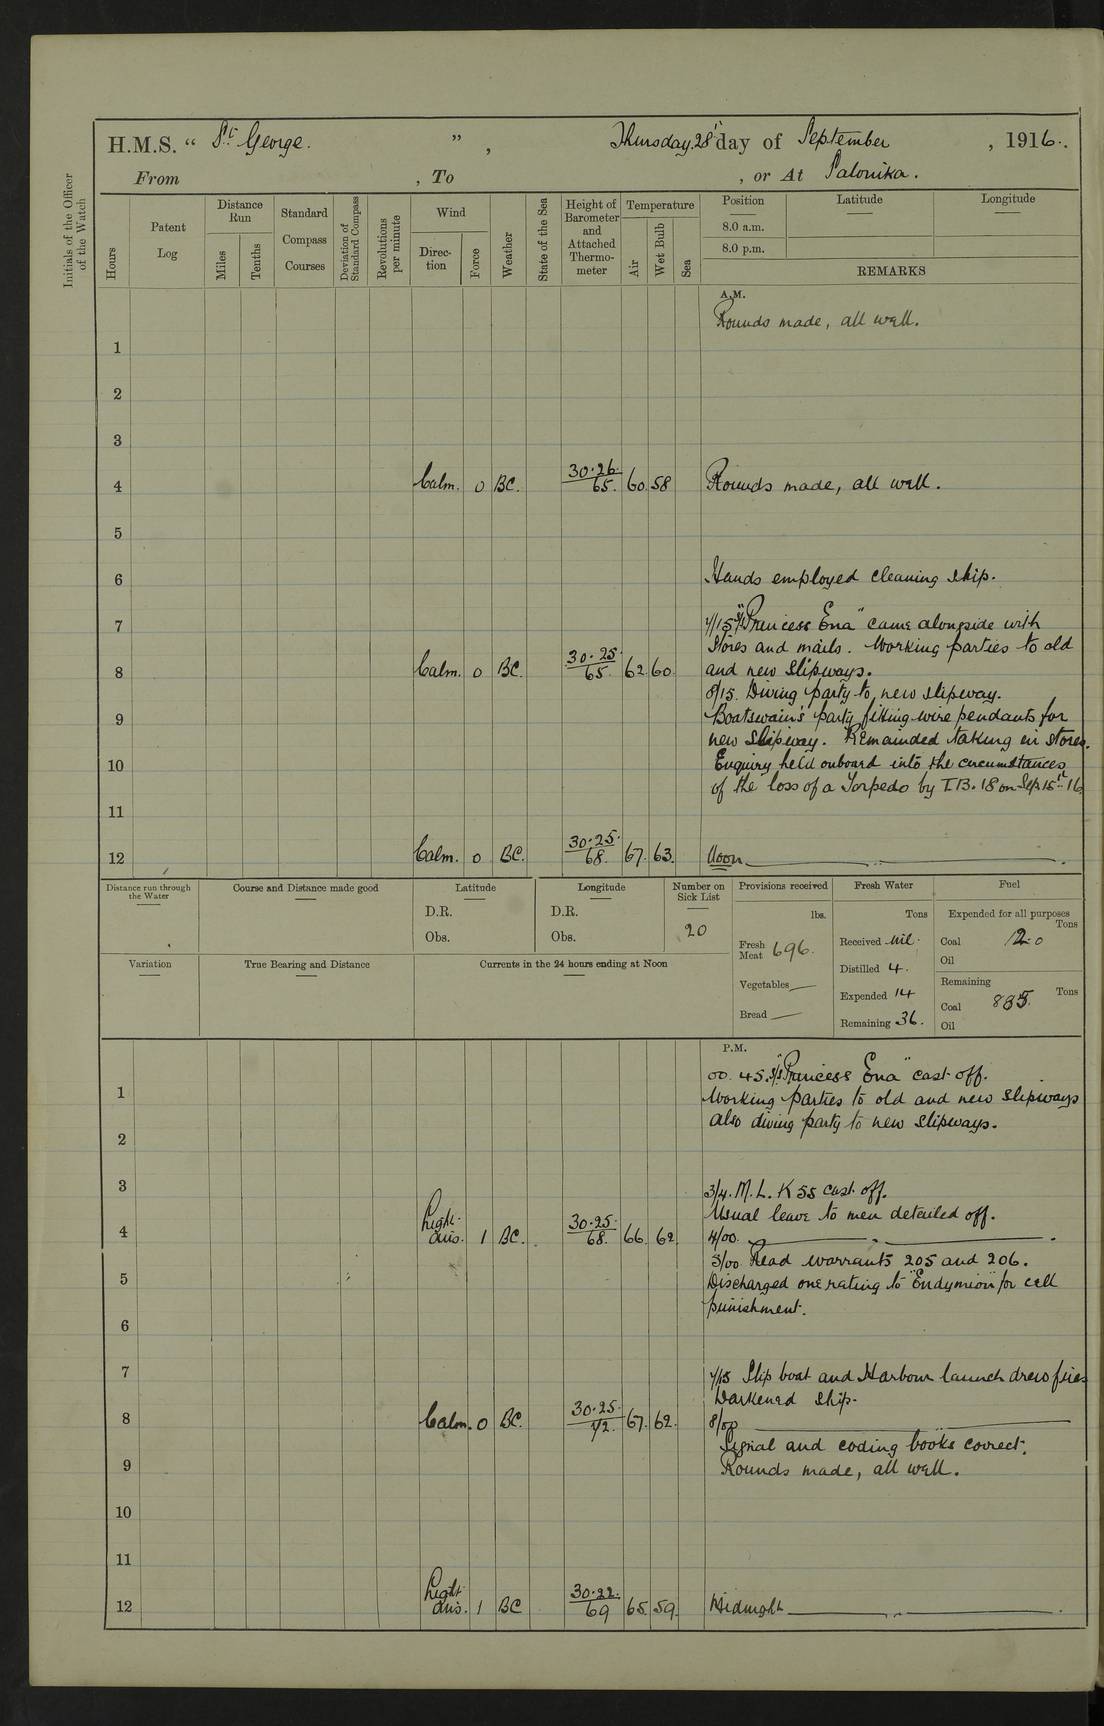 H.M.S. “ St. George. ” , Thursday 28th day of September , 1916.
From , To , or At Salonika.
Initials of the Officer of the Watch
Hours
Patent Log
Distance Run
Miles
Tenths
Standard Compass Courses
Deviation of Standard Compass
Revolutions per minute
Wind
Direction
Force
Weather
State of the Sea
Height of Barometer and Attached Thermometer
Temperature
Air
Wet Bulb
Sea
Position
8.0 a.m.
8.0 p.m.
Latitude
Longitude
REMARKS
A.M.
Rounds made, all well.
1
2
3
4 Calm. 0 BC. 30.26. 65. 60. 58 Rounds made, all well.
5
6 Hands employed cleaning ship.
7 7/15 S/S "Princess Ena" came alongside with
stores and mails. Working parties to old
8 Calm. 0 BC. 30.25 65. 62. 60. and new slipways.
8/15. Diving party to new slipway.
9 Boatswain's party fitting wire pendants for
new slipway. Remainded taking in stores.
10 Enquiry held onboard into the circumstances
of the loss of a Torpedo by T.B. 18 on Sep 15th 16
11
12 Calm. 0 BC. 30.25. 68. 67. 63. Noon
Distance run through the Water
Course and Distance made good
Latitude
D.R.
Obs.
Longitude
D.R.
Obs.
Number on Sick List
20
Provisions received
lbs.
Fresh Meat 696.
Vegetables —
Bread —
Fresh Water
Tons
Received Nil.
Distilled 4.
Expended 14
Remaining 36.
Fuel
Expended for all purposes
Tons
Coal 12.0
Oil
Remaining
Tons
Coal 885.
Oil
Variation
True Bearing and Distance
Currents in the 24 hours ending at Noon
P.M.
00.45. S/S "Princess Ena" cast off.
1 Working parties to old and new slipways
also diving party to new slipways.
2
3 3/4. M.L. K 55 cast off.
Usual leave to men detailed off.
4 Light airs. 1 BC. 30.25. 68. 66. 62. 4/00.
5/00. Read warrants 205 and 206.
5 Discharged one rating to "Endymion" for cell
punishment.
6
7 7/15 Slip boat and Harbour launch drew fires
Darkened ship.
8 Calm. 0 BC. 30.25. 72. 67. 62. 8/00
Signal and coding books correct.
9 Rounds made, all well.
10
11
12 Light airs. 1 BC 30.22. 69 65. 59. Midnight